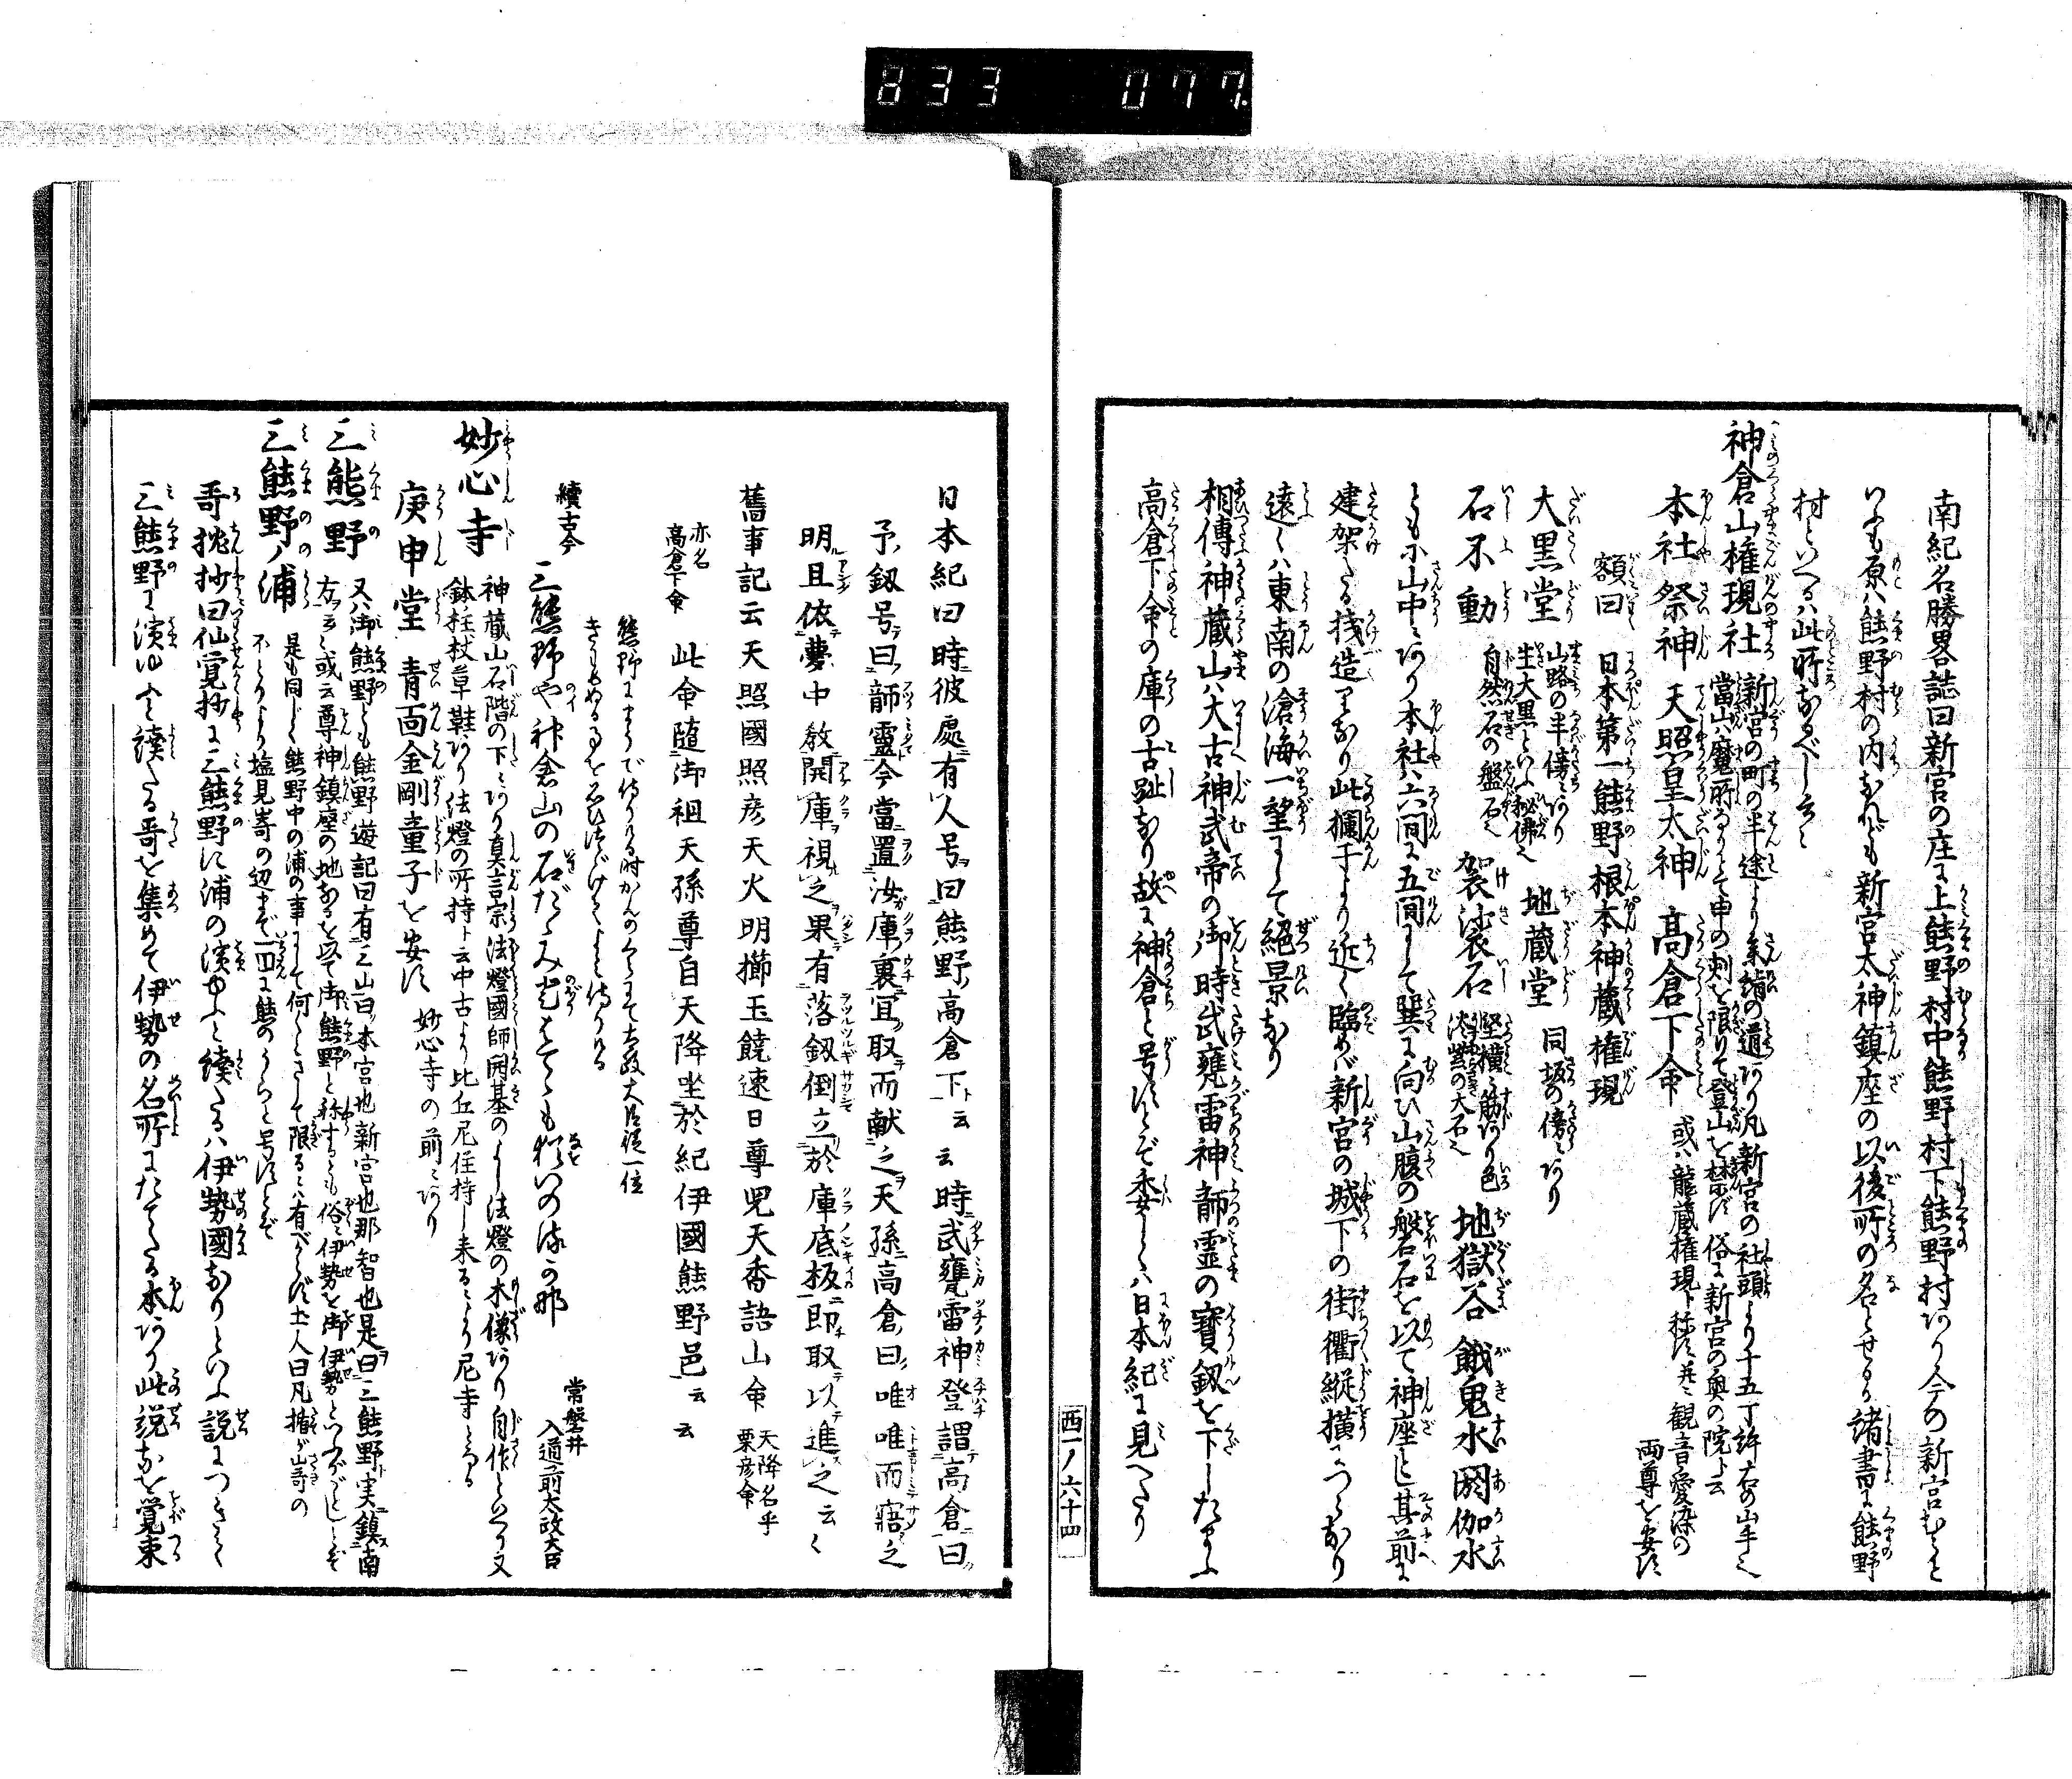 833 077.
南紀名勝畧誌曰新宮の庄に上熊野村中熊野村下熊野村あり今の新宮むらと
いふも原ハ熊野村の内なれども新宮太神鎮座の以後所の名とせるか諸書に熊野
村といへるハ此所なるべし云々
神倉山権現社 新宮の町の半途より糸絹の道あり凡新宮の社頭より十五丁許右の山手也
當山ハ魔所なりとて申の刻を限りて登山を禁ず俗に新宮の奥の院ト云
本社祭神 天照皇太神 高倉下命 或ハ龍蔵権現ト称ず并ニ観音愛染の
両尊を安ず
額曰 日本第一熊野根本神蔵権現
大黒堂 山路の半傍ニあり
生大黒といふ秘佛也 地蔵堂 同坂の傍ニあり
石不動 自然石の盤石也 袈裟石 竪横ニ筋あり色
淡紫の大石也 地獄谷 餓鬼水 閼伽水
ともに山中ニあり本社ハ六間に五間にして巽に向ひ山腹の磐石を以て神座とし其前に
建架たる棧造りなり此欄干より近く臨めバ新宮の城下の街衢縦横につらなり
遠くハ東南の滄海一望にして絶景なり
相傳神蔵山ハ大古神武帝の御時武甕雷神韴霊の寶釼を下したまふ
高倉下命の庫の古趾なり故に神倉と号すとぞ委しくハ日本紀に見へたり
西一ノ六十四
日本紀曰時彼處有人号曰熊野高倉下云云時武甕雷神登謂高倉曰
予釼号曰韴靈今當置汝庫裏宜取而献之天孫高倉曰唯唯而寤之
明且依夢中教開庫視之果有落釼倒立於庫底板即取以進之云々
舊事記云天照國照彦天火明櫛玉饒速日尊児天香語山命 天降名乎
栗彦命
亦名
高倉下命 此命随御祖天孫尊自天降坐於紀伊國熊野邑云云
熊野にまうで侍りける時かんのくらにて太政大臣従一位
きはめぬる事を思ひつゞけてよみ侍りける
續古今 三熊野や神倉山の石だゝみのぼりはてゝも猶いのるかな 常磐井
入道前太政大臣
妙心寺 神蔵山石階の下ニあり真言宗法燈國師開基のよし法燈の木像あり自作といへり又
鉢柱杖草鞋あり法燈の所持ト云中古より比丘尼住持し来るより尼寺となる
庚申堂 青面金剛童子を安ず 妙心寺の前ニあり
三熊野 又ハ御熊野とも熊野遊記曰有三山曰本宮也新宮也那智也是曰三熊野実鎮南
方云々或云尊神鎮座の地なるを以て御熊野と称するとも俗ニ伊勢を御伊勢といふがごとしとぞ
三熊野ノ浦 是も同じく熊野中の浦の事にして何くとさして限るニハ有べからず土人曰凡楯が崎の
不とりより塩見崎の辺まで一囬に熊のうらと号すとぞ
哥枕抄曰仙覚抄に三熊野に浦の濱ゆふと續たるハ伊勢國なりといふ説につきて
三熊野に濱ゆふと續たる哥を集めて伊勢の名所にたてたる本あり此説なを覚束